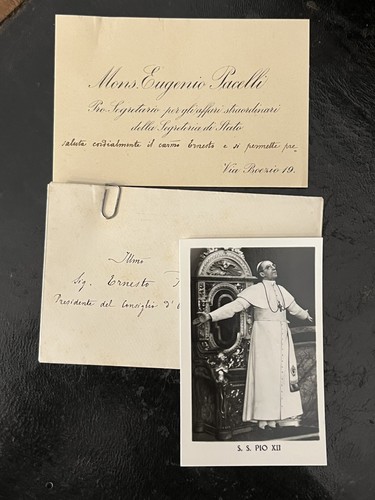 Mons. Eugenio Pacelli
Pro Segretario per gli affari straordinari
della Segreteria di Stato
saluta cordialmente il carmo Ernesto e si permette pre=
Via Boezio 19.
Illmo
Sig. Ernesto
Presidente del Consiglio d'
S. S. PIO XII